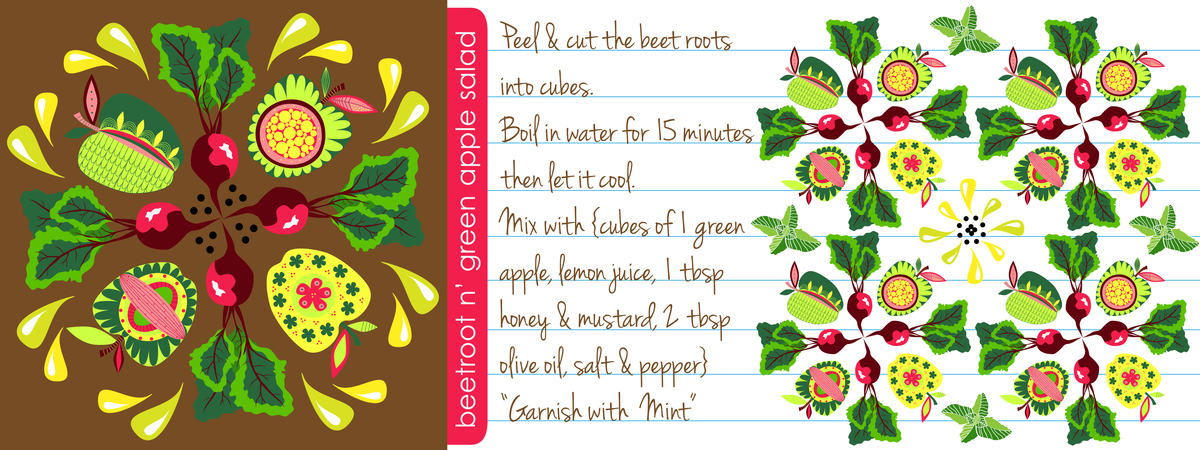 beetroot n' green apple salad
Peel & cut the beet roots
into cubes.
Boil in water for 15 minutes
then let it cool.
Mix with {cubes of 1 green
apple, lemon juice, 1 tbsp
honey & mustard, 2 tbsp
olive oil, salt & pepper}
"Garnish with Mint"